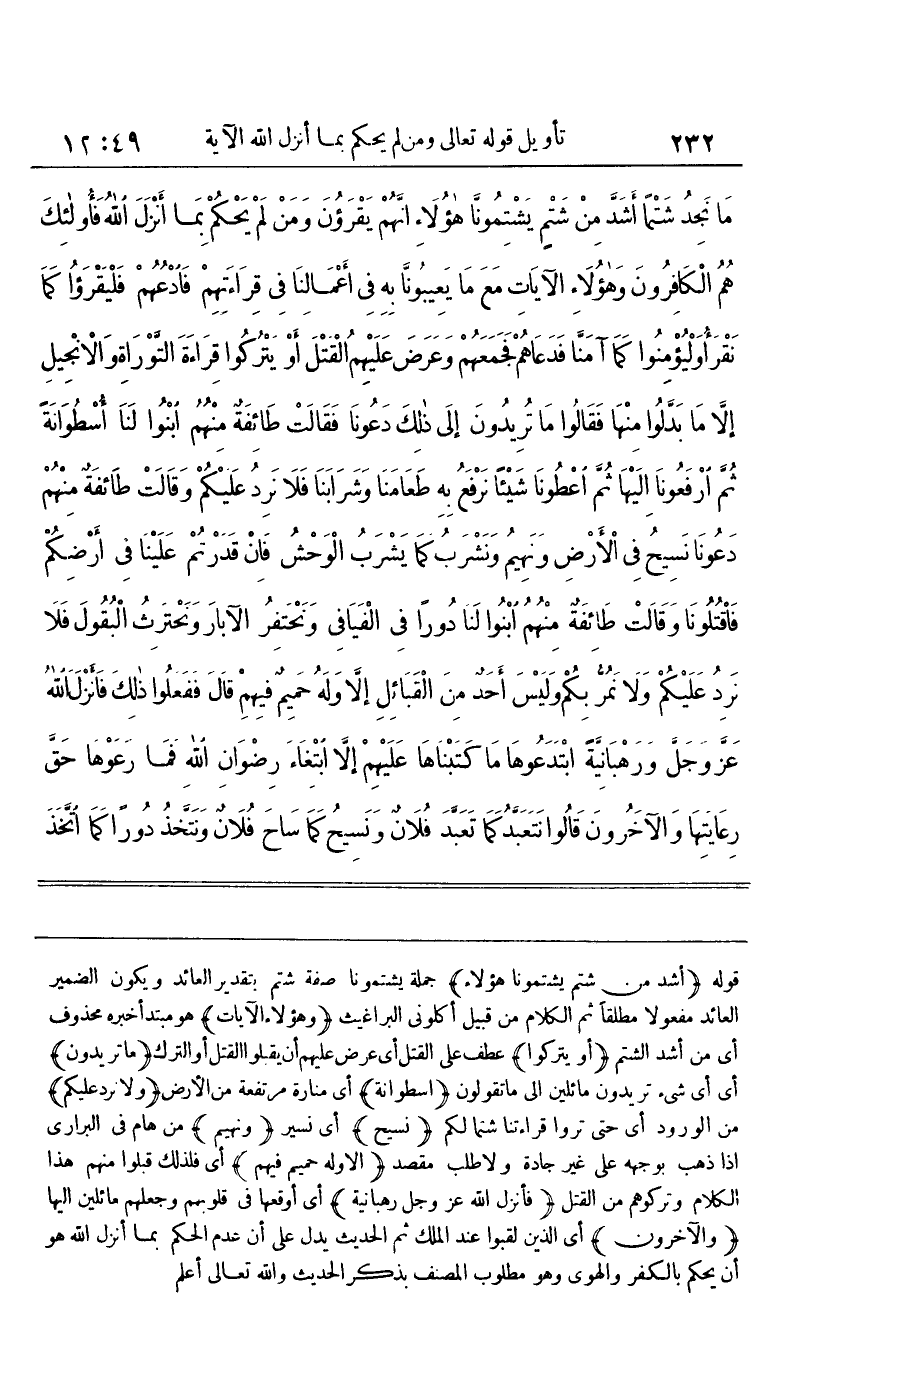 ٢٣٢ تأويل قوله تعالى ومن لم يحكم بما أنزل الله الآية ١٢:٤٩
مَا نَجِدُ شَتْمًا أَشَدَّ مِنْ شَتْمٍ يَشْتِمُونَّا هٰؤُلَاءِ انَّهُمْ يَقْرَؤُنَ وَمَنْ لَمْ يَحْكُمْ بِمَا أَنْزَلَ ٱللهُ فَأُولٰئِكَ
هُمُ الْكَافِرُونَ وَهٰؤُلَاءِ الآيَاتِ مَعَ مَا يَعِيبُونَّا بِهِ فِى أَعْمَالِنَا فِى قِرَاءَتِهِمْ فَادْعُهُمْ فَلْيَقْرَؤُا كَمَا
نَقْرَأُ وَلْيُؤْمِنُوا كَمَا آمَنَّا فَدَعَاهُمْ فَجَمَعَهُمْ وَعَرَضَ عَلَيْهِمُ الْقَتْلَ أَوْ يَتْرُكُوا قِرَاءَةَ التَّوْرَاةِ وَالْانْجِيلِ
إِلَّا مَا بَدَّلُوا مِنْهَا فَقَالُوا مَا تُرِيدُونَ إِلَى ذٰلِكَ دَعُونَا فَقَالَتْ طَائِفَةٌ مِنْهُمُ ٱبْنُوا لَنَا أُسْطُوَانَةً
ثُمَّ ٱرْفَعُونَا الَيْهَا ثُمَّ ٱعْطُونَا شَيْئًا نَرْفَعُ بِهِ طَعَامَنَا وَشَرَابَنَا فَلَا نَرِدُ عَلَيْكُمْ وَقَالَتْ طَائِفَةٌ مِنْهُمْ
دَعُونَا نَسِيحُ فِى الْأَرْضِ وَنَهِيمُ وَنَشْرَبُ كَمَا يَشْرَبُ الْوَحْشُ فَانْ قَدَرْتُمْ عَلَيْنَا فِى أَرْضِكُمْ
فَاقْتُلُونَا وَقَالَتْ طَائِفَةٌ مِنْهُمُ ٱبْنُوا لَنَا دُورًا فِى الْفَيَافِى وَنَحْتَفِرُ الآبَارَ وَنَحْتَرِثُ الْبُقُولَ فَلَا
نَرِدُ عَلَيْكُمْ وَلَا نَمُرُّ بِكُمْ وَلَيْسَ أَحَدٌ مِنَ الْقَبَائِلِ إِلَّا وَلَهُ حَمِيمٌ فِيهِمْ قَالَ فَفَعَلُوا ذٰلِكَ فَأَنْزَلَ ٱللهُ
عَزَّ وَجَلَّ وَرَهْبَانِيَّةً ابْتَدَعُوهَا مَا كَتَبْنَاهَا عَلَيْهِمْ إِلَّا ٱبْتِغَاءَ رِضْوَانِ ٱللهِ فَمَا رَعَوْهَا حَقَّ
رِعَايَتِهَا وَالآخَرُونَ قَالُوا نَتَعَبَّدُ كَمَا تَعَبَّدَ فُلَانٌ وَنَسِيحُ كَمَا سَاحَ فُلَانٌ وَنَتَّخِذُ دُورًا كَمَا ٱتَّخَذَ
قوله ﴿أشد من شتم يشتمونا هؤلاء﴾ جملة يشتمونا صفة شتم بتقدير العائد ويكون الضمير
العائد مفعولا مطلقا ثم الكلام من قبيل أكلونى البراغيث ﴿وهؤلاء الآيات﴾ هو مبتدأ خبره محذوف
أى من أشد الشتم ﴿أو يتركوا﴾ عطف على القتل أى عرض عليهم أن يقبلوا القتل أو الترك ﴿ما تريدون﴾
أى أى شىء تريدون مائلين الى ما تقولون ﴿اسطوانة﴾ أى منارة مرتفعة من الأرض ﴿ولا نرد عليكم﴾
من الورود أى حتى تروا قراءتنا شتما لكم ﴿نسيح﴾ أى نسير ﴿ونهيم﴾ من هام فى البرارى
اذا ذهب بوجهه على غير جادة ولا طلب مقصد ﴿الا وله حميم فيهم﴾ أى فلذلك قبلوا منهم هذا
الكلام وتركوهم من القتل ﴿فأنزل الله عز وجل رهبانية﴾ أى أوقعها فى قلوبهم وجعلهم مائلين اليها
﴿والآخرون﴾ أى الذين لقبوا عند الملك ثم الحديث يدل على أن عدم الحكم بما أنزل الله هو
أن يحكم بالكفر والهوى وهو مطلوب المصنف بذكر الحديث والله تعالى أعلم